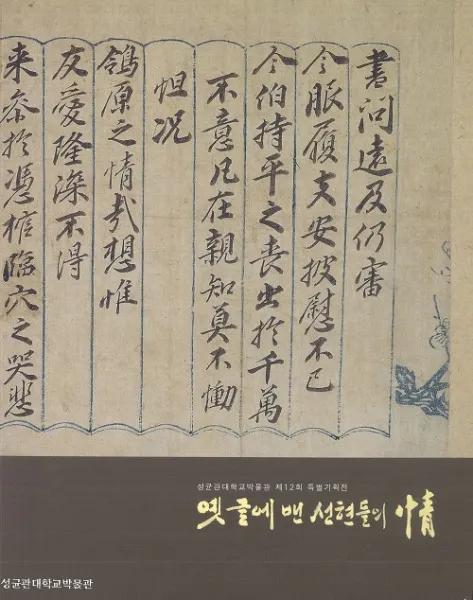 書問遠及仍審
令服履支安披慰不已
令伯持平之喪出於千萬
不意凡在親知莫不慟
怛况
鴒原之情哉想惟
友愛隆深不得
来參於憑棺臨穴之哭悲
성균관대학교박물관 제12회 특별기획전
옛 글에 밴 선현들의 情
성균관대학교박물관